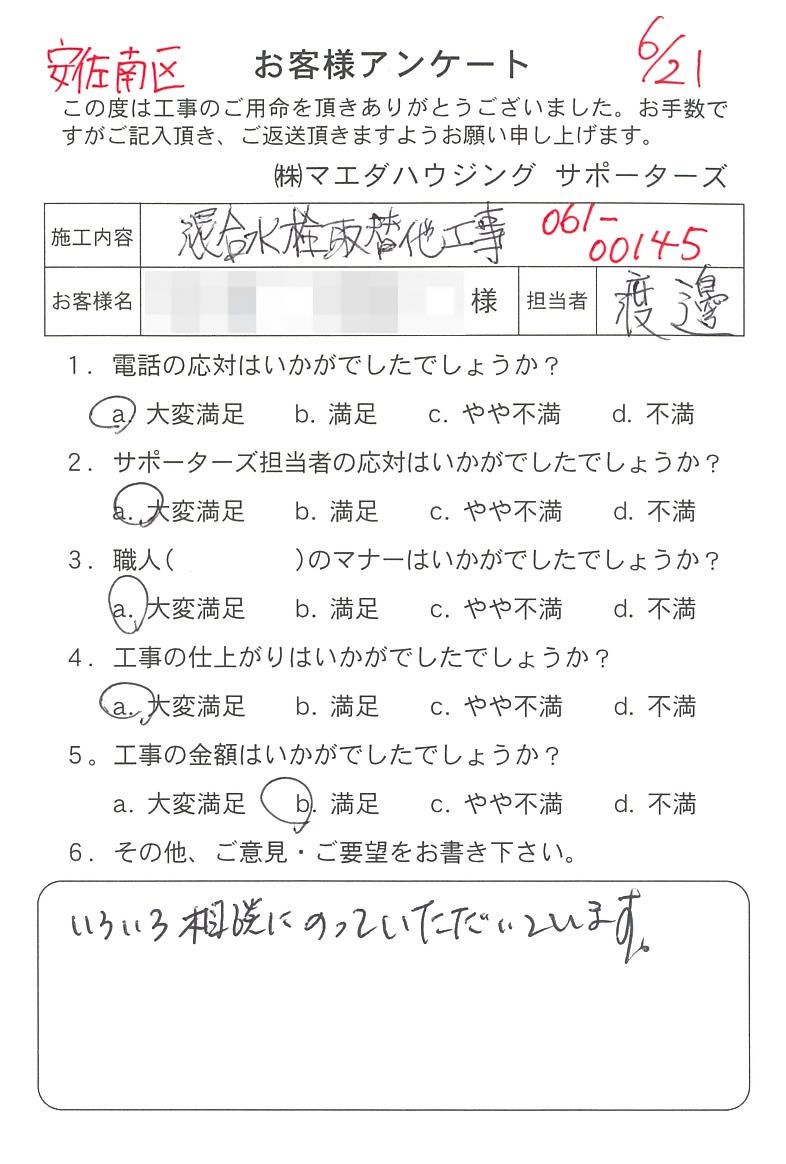 安佐南区 お客様アンケート 6/21
この度は工事のご用命を頂きありがとうございました。お手数で
すがご記入頂き、ご返送頂きますようお願い申し上げます。
㈱マエダハウジング サポーターズ
施工内容 混合水栓取替他工事 061-
00145
お客様名 様 担当者 渡邊
1．電話の応対はいかがでしたでしょうか？
a. 大変満足 b. 満足 c. やや不満 d. 不満
2．サポーターズ担当者の応対はいかがでしたでしょうか？
a. 大変満足 b. 満足 c. やや不満 d. 不満
3．職人( )のマナーはいかがでしたでしょうか？
a. 大変満足 b. 満足 c. やや不満 d. 不満
4．工事の仕上がりはいかがでしたでしょうか？
a. 大変満足 b. 満足 c. やや不満 d. 不満
5。工事の金額はいかがでしたでしょうか？
a. 大変満足 b. 満足 c. やや不満 d. 不満
6．その他、ご意見・ご要望をお書き下さい。
いろいろ相談にのっていただいています。